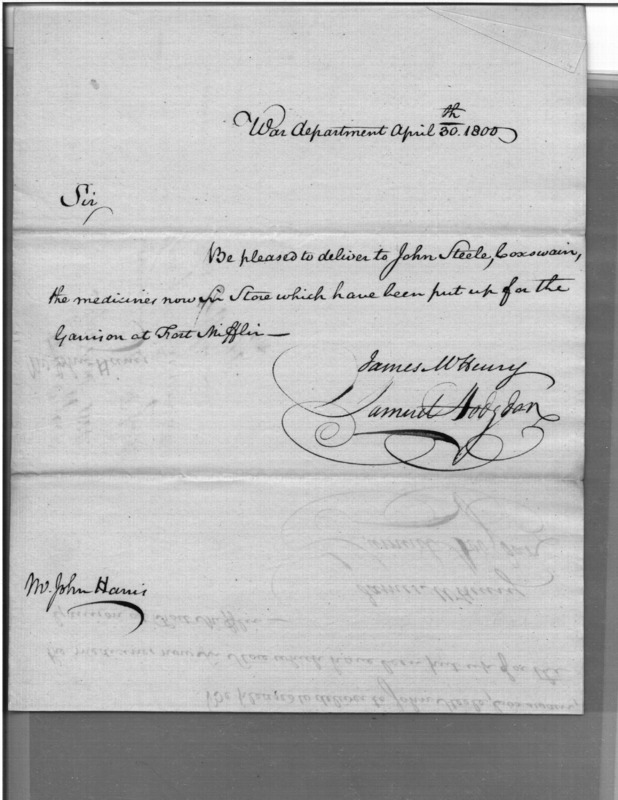 War department April 30th. 1800
Sir
Be pleased to deliver to John Steele, Coxswain,
the medicines now in Store which have been put up for the
Garrison at Fort Mifflin—
James McHenry
Samuel Hodgdon
Mr. John Harris